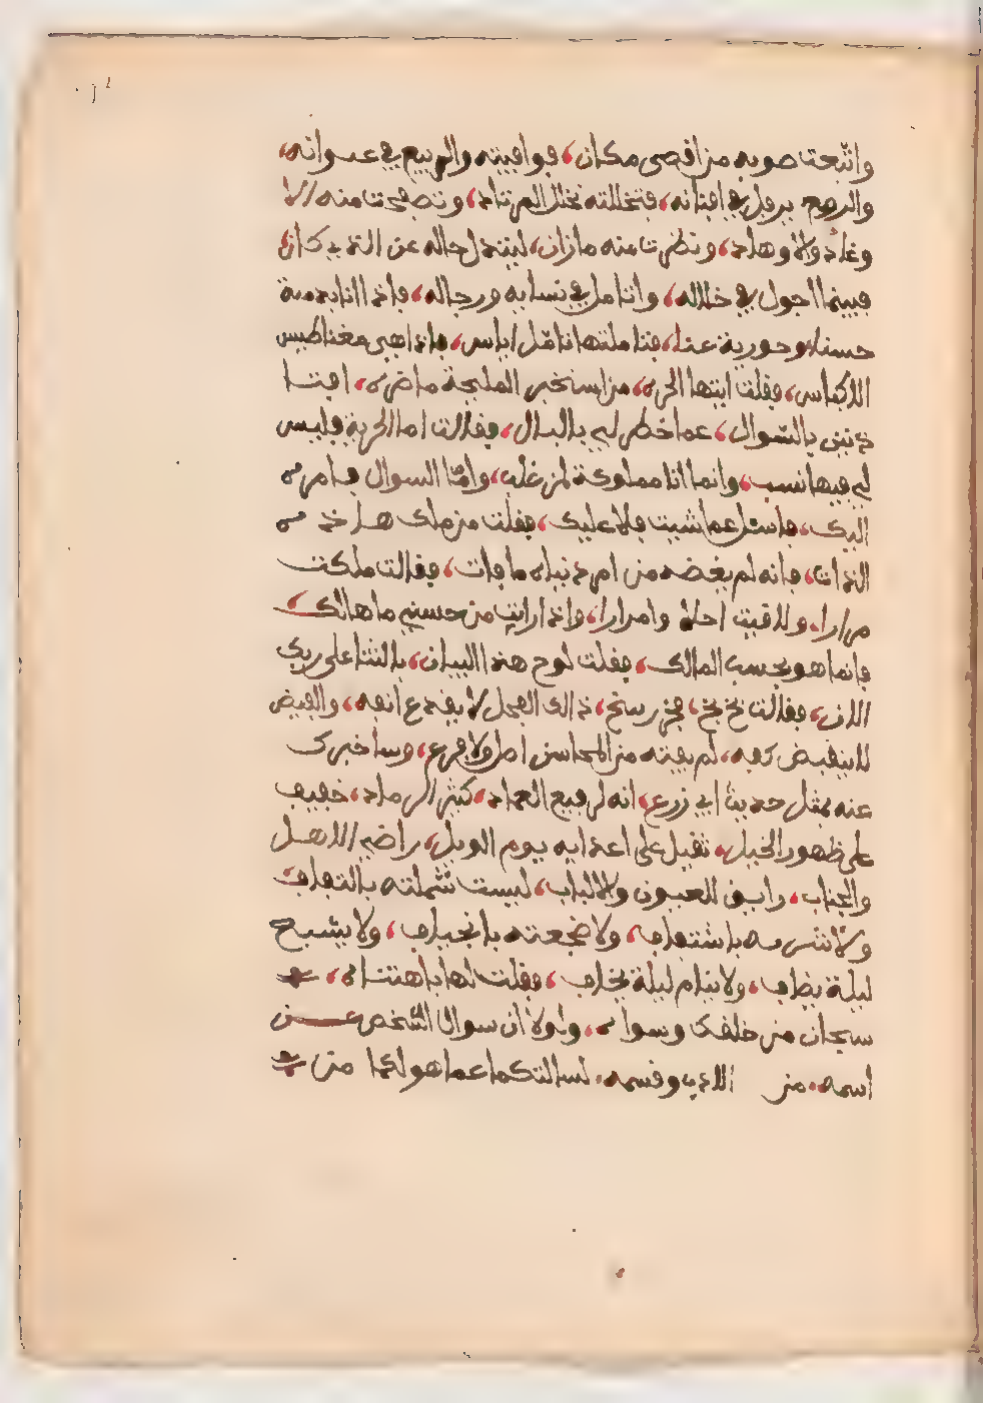 واتبعت صوبه من اقصى مكان، فوافيته والربيع في عنوانه،
والروح يرفل في افنانه، فتخللته تخلل المرتاد، وتصفحت منه الا
وغاد ولا وهاد، ونظرت منه مازان، ليتبدل حاله عن الذي كان،
فبينما اجول في خلاله، واتامل في نسايه ورجاله، فاذا انا بدمية
حسناء وحورية عنا، فتاملتها تامل اياس، فاذا هي مغناطيس
الاكياس، فقلت ايتها الحرة، من استخبر المليحة ما ضره، افتا
ذنين بالسوال، عما خطر لي بالبال، فقالت اما الحرية فليس
لي فيها نسب، وانما انا مملوكة لمن غلب، واما السوال فامره
اليك، فاسئل عما شيت فلا عليك، فقلت من ملك هاذه
الذات، فانه لم يغضه من امر دنياه ما فات، فقالت ملكت
مرارا، ولاقيت احلاء وامرارا، واذا رايت من حسني ما هالك
فانما هو بحسب المالك، فقلت لوح هذا البيان، بالثنا على ربك
الان، فقالت بخ بخ، فخر رسخ، ذالك الفحل لا يقدع انفه، والفيض
لا ينقبض كفه، لم يفته من المحاسن اصل ولا فرع، وساخبرك
عنه بمثل حديث ابي زرع، انه لرفيع العماد، كثير الرماد، خفيف
على ظهور الخيل، ثقيل على اعدايه يوم الويل، راضي الاهل
والجناب، رايق للعيون والالباب، ليست شملته بالتفاف
ولا شربه باشتفاف، ولا ضجعته بانجعاف، ولا يشبع
ليلة يضاف، ولا ينام ليلة يخاف، فقلت لها باهتتاه،
سبحان من خلقك وسواه، ولولا ان سوال الشخص عن
اسمه، من الادب وقسمه، لسالتكما عما هو لكما من